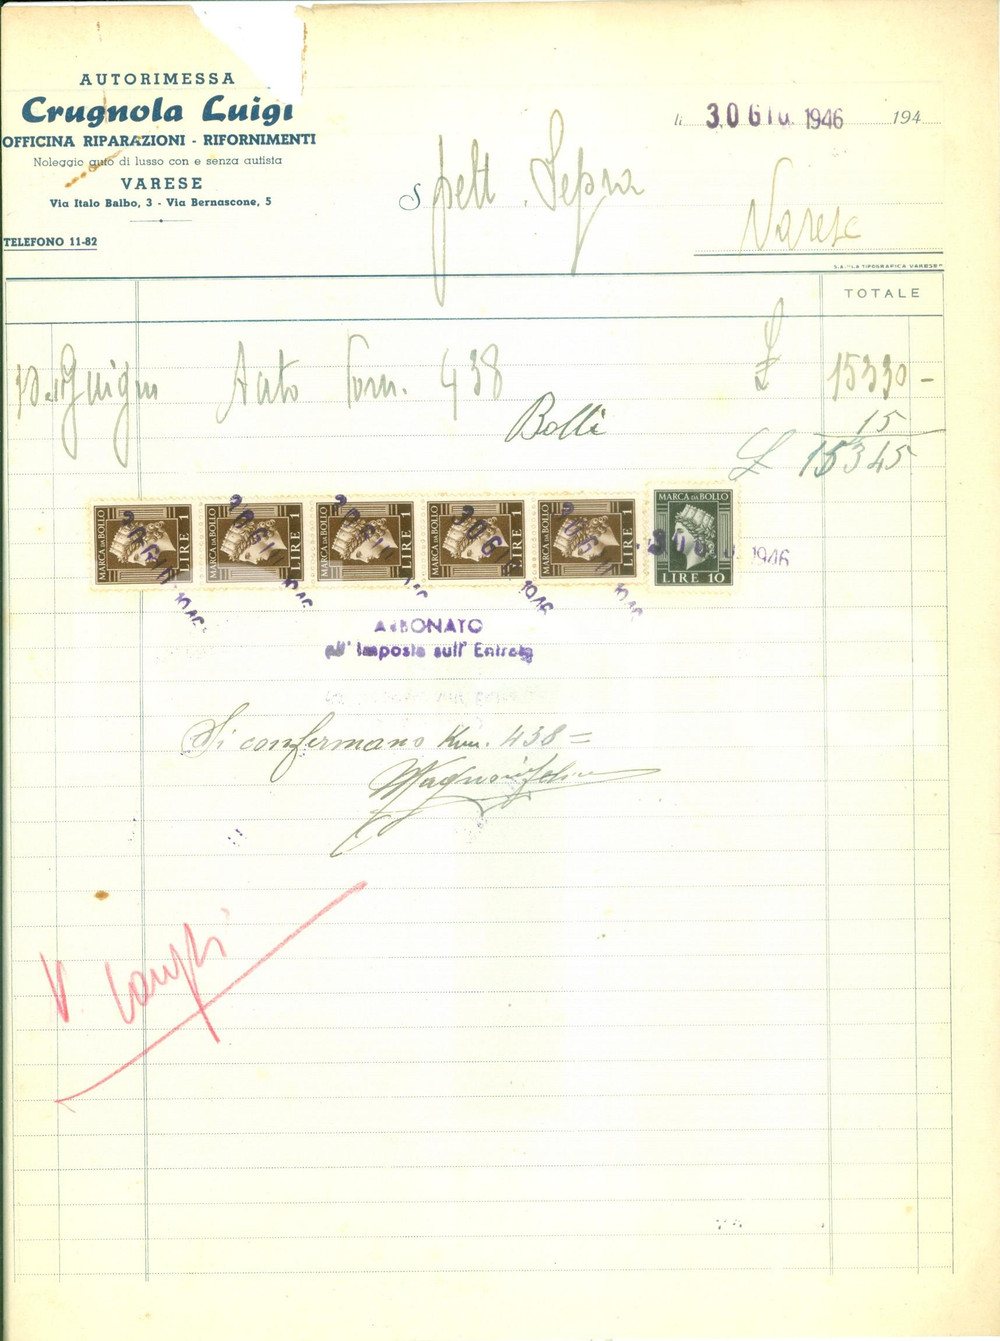 AUTORIMESSA
Crugnola Luigi
OFFICINA RIPARAZIONI - RIFORNIMENTI
Noleggio auto di lusso con e senza autista
VARESE
Via Italo Balbo, 3 - Via Bernascone, 5
TELEFONO 11-82
li 30 GIU. 1946 194
Spett. Sepra
Varese
S.A. "LA TIPOGRAFICA VARESE"
TOTALE
Giugno Auto Km. 438 £ 15330 -
Bolli 15
£ 15345
MARCA DA BOLLO LIRE 1
MARCA DA BOLLO LIRE 1
MARCA DA BOLLO LIRE 1
MARCA DA BOLLO LIRE 1
MARCA DA BOLLO LIRE 1
MARCA DA BOLLO LIRE 10
30 GIU. 1946
ABBONATO
all' Imposta sull' Entrata
Si confermano Km. 438 =
V.